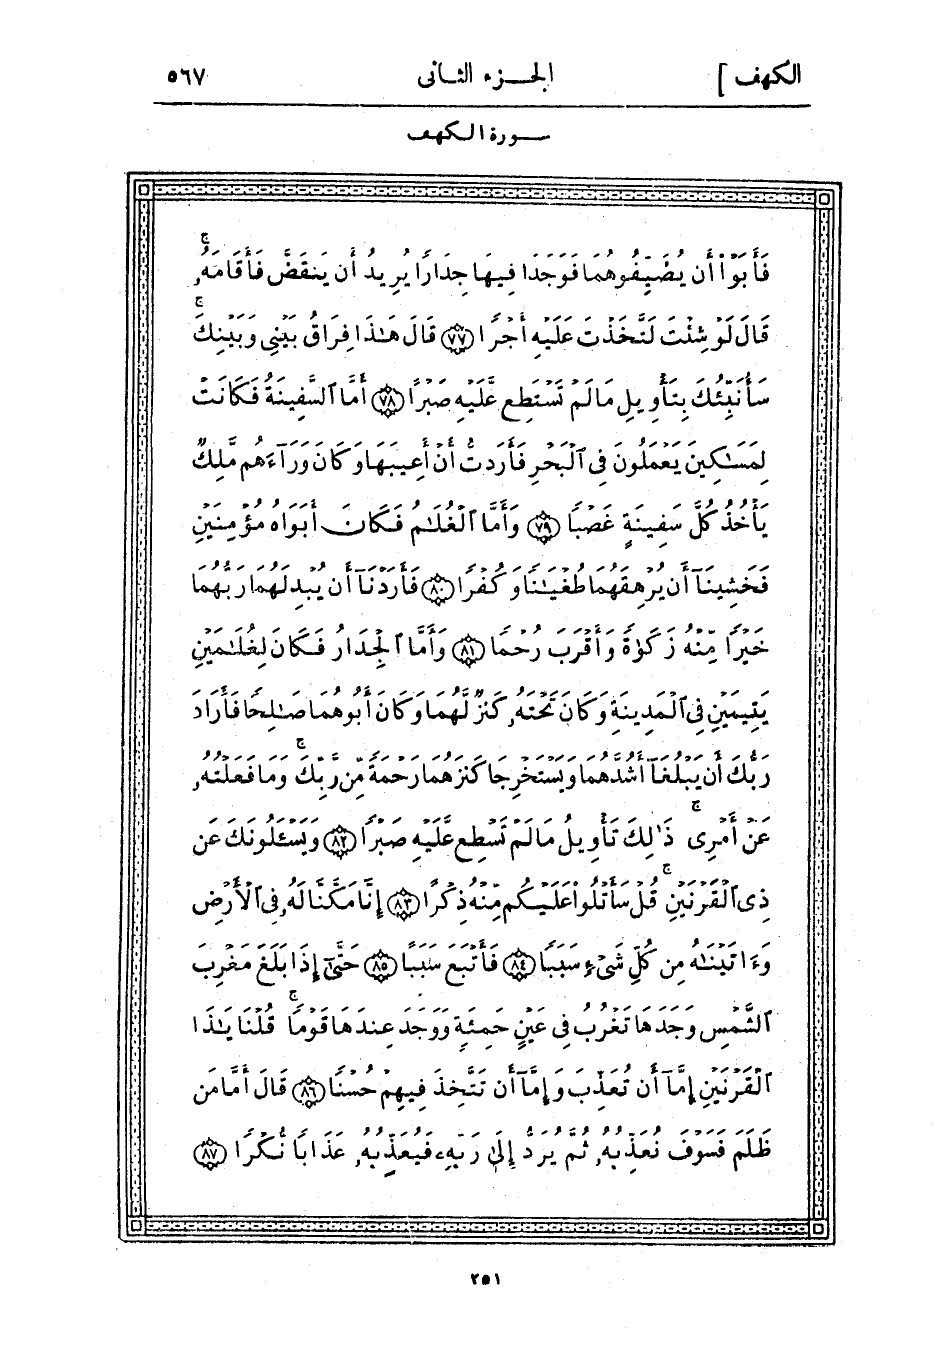 الكهف ] الجزء الثانى ٥٦٧
سورة الكهف
فَأَبَوْا۟ أَن يُضَيِّفُوهُمَا فَوَجَدَا فِيهَا جِدَارًا يُرِيدُ أَن يَنقَضَّ فَأَقَامَهُۥ ۖ
قَالَ لَوْ شِئْتَ لَتَّخَذْتَ عَلَيْهِ أَجْرًا ﴿٧٧﴾ قَالَ هَـٰذَا فِرَاقُ بَيْنِى وَبَيْنِكَ ۚ
سَأُنَبِّئُكَ بِتَأْوِيلِ مَا لَمْ تَسْتَطِع عَّلَيْهِ صَبْرًا ﴿٧٨﴾ أَمَّا ٱلسَّفِينَةُ فَكَانَتْ
لِمَسَـٰكِينَ يَعْمَلُونَ فِى ٱلْبَحْرِ فَأَرَدتُّ أَنْ أَعِيبَهَا وَكَانَ وَرَآءَهُم مَّلِكٌ
يَأْخُذُ كُلَّ سَفِينَةٍ غَصْبًا ﴿٧٩﴾ وَأَمَّا ٱلْغُلَـٰمُ فَكَانَ أَبَوَاهُ مُؤْمِنَيْنِ
فَخَشِينَآ أَن يُرْهِقَهُمَا طُغْيَـٰنًا وَكُفْرًا ﴿٨٠﴾ فَأَرَدْنَآ أَن يُبْدِلَهُمَا رَبُّهُمَا
خَيْرًا مِّنْهُ زَكَوٰةً وَأَقْرَبَ رُحْمًا ﴿٨١﴾ وَأَمَّا ٱلْجِدَارُ فَكَانَ لِغُلَـٰمَيْنِ
يَتِيمَيْنِ فِى ٱلْمَدِينَةِ وَكَانَ تَحْتَهُۥ كَنزٌ لَّهُمَا وَكَانَ أَبُوهُمَا صَـٰلِحًا فَأَرَادَ
رَبُّكَ أَن يَبْلُغَآ أَشُدَّهُمَا وَيَسْتَخْرِجَا كَنزَهُمَا رَحْمَةً مِّن رَّبِّكَ ۚ وَمَا فَعَلْتُهُۥ
عَنْ أَمْرِى ۚ ذَٰلِكَ تَأْوِيلُ مَا لَمْ تَسْطِع عَّلَيْهِ صَبْرًا ﴿٨٢﴾ وَيَسْـَٔلُونَكَ عَن
ذِى ٱلْقَرْنَيْنِ ۖ قُلْ سَأَتْلُوا۟ عَلَيْكُم مِّنْهُ ذِكْرًا ﴿٨٣﴾ إِنَّا مَكَّنَّا لَهُۥ فِى ٱلْأَرْضِ
وَءَاتَيْنَـٰهُ مِن كُلِّ شَىْءٍ سَبَبًا ﴿٨٤﴾ فَأَتْبَعَ سَبَبًا ﴿٨٥﴾ حَتَّىٰٓ إِذَا بَلَغَ مَغْرِبَ
ٱلشَّمْسِ وَجَدَهَا تَغْرُبُ فِى عَيْنٍ حَمِئَةٍ وَوَجَدَ عِندَهَا قَوْمًا ۗ قُلْنَا يَـٰذَا
ٱلْقَرْنَيْنِ إِمَّآ أَن تُعَذِّبَ وَإِمَّآ أَن تَتَّخِذَ فِيهِمْ حُسْنًا ﴿٨٦﴾ قَالَ أَمَّا مَن
ظَلَمَ فَسَوْفَ نُعَذِّبُهُۥ ثُمَّ يُرَدُّ إِلَىٰ رَبِّهِۦ فَيُعَذِّبُهُۥ عَذَابًا نُّكْرًا ﴿٨٧﴾
٢٥١